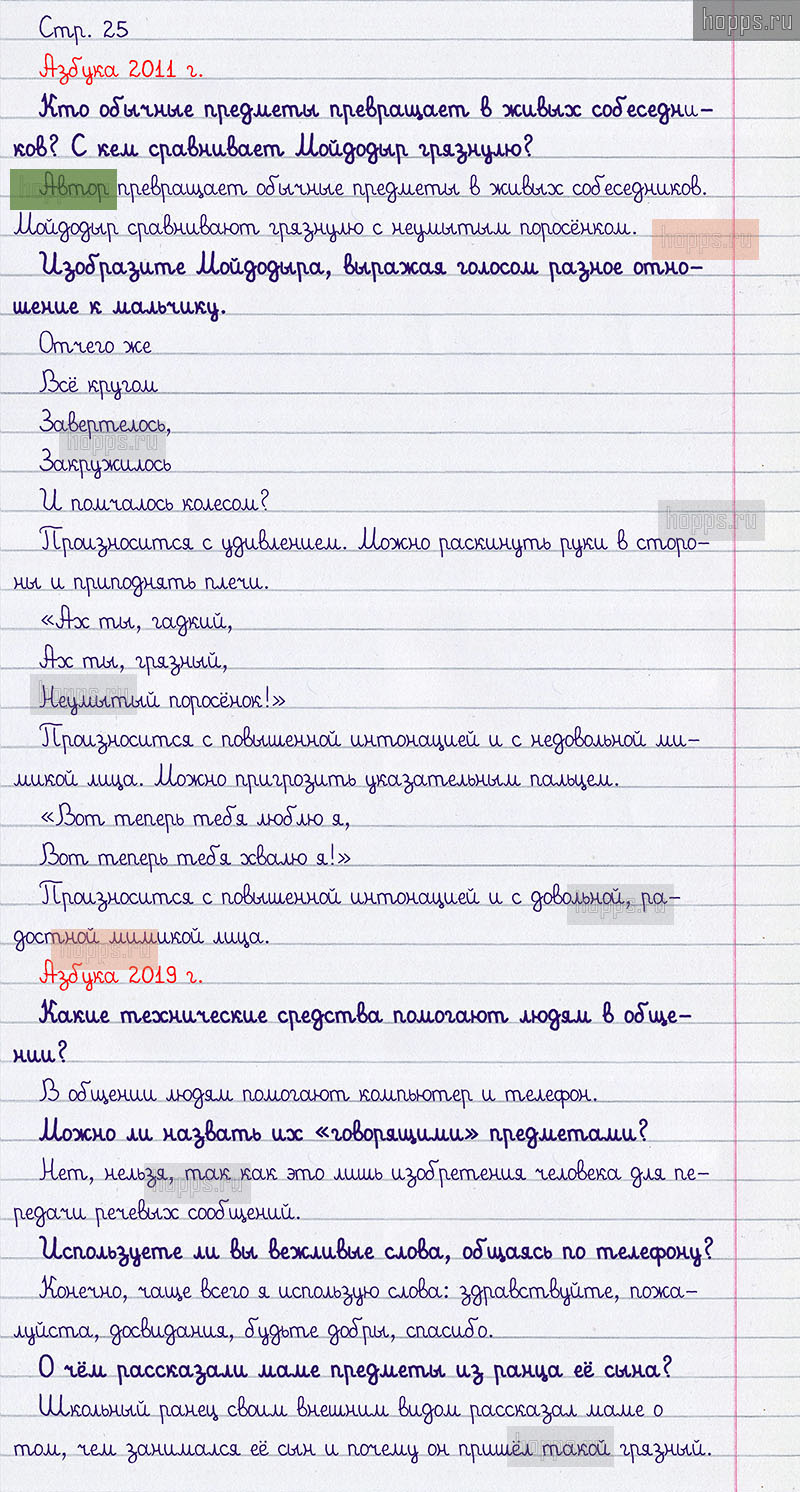 hopps.ru
Стр. 25
Азбука 2011 г.
Кто обычные предметы превращает в живых собеседни-
ков? С кем сравнивает Мойдодыр грязнулю?
Автор превращает обычные предметы в живых собеседников.
Мойдодыр сравнивают грязнулю с неумытым поросёнком.
hopps.ru
Изобразите Мойдодыра, выражая голосом разное отно-
шение к мальчику.
Отчего же
Всё кругом
Завертелось,
hopps.ru
Закружилось
И помчалось колесом?
hopps.ru
Произносится с удивлением. Можно раскинуть руки в сторо-
ны и приподнять плечи.
«Ах ты, гадкий,
Ах ты, грязный,
Неумытый поросёнок!»
Произносится с повышенной интонацией и с недовольной ми-
микой лица. Можно пригрозить указательным пальцем.
«Вот теперь тебя люблю я,
Вот теперь тебя хвалю я!»
Произносится с повышенной интонацией и с довольной, ра-
hopps.ru
достной мимикой лица.
hopps.ru
Азбука 2019 г.
Какие технические средства помогают людям в обще-
нии?
В общении людям помогают компьютер и телефон.
Можно ли назвать их «говорящими» предметами?
Нет, нельзя, так как это лишь изобретения человека для пе-
hopps.ru
редачи речевых сообщений.
Используете ли вы вежливые слова, общаясь по телефону?
Конечно, чаще всего я использую слова: здравствуйте, пожа-
луйста, досвидания, будьте добры, спасибо.
О чём рассказали маме предметы из ранца её сына?
Школьный ранец сваим внешним видом рассказал маме о
том, чем занимался её сын и почему он пришёл такой грязный.
hopps.ru